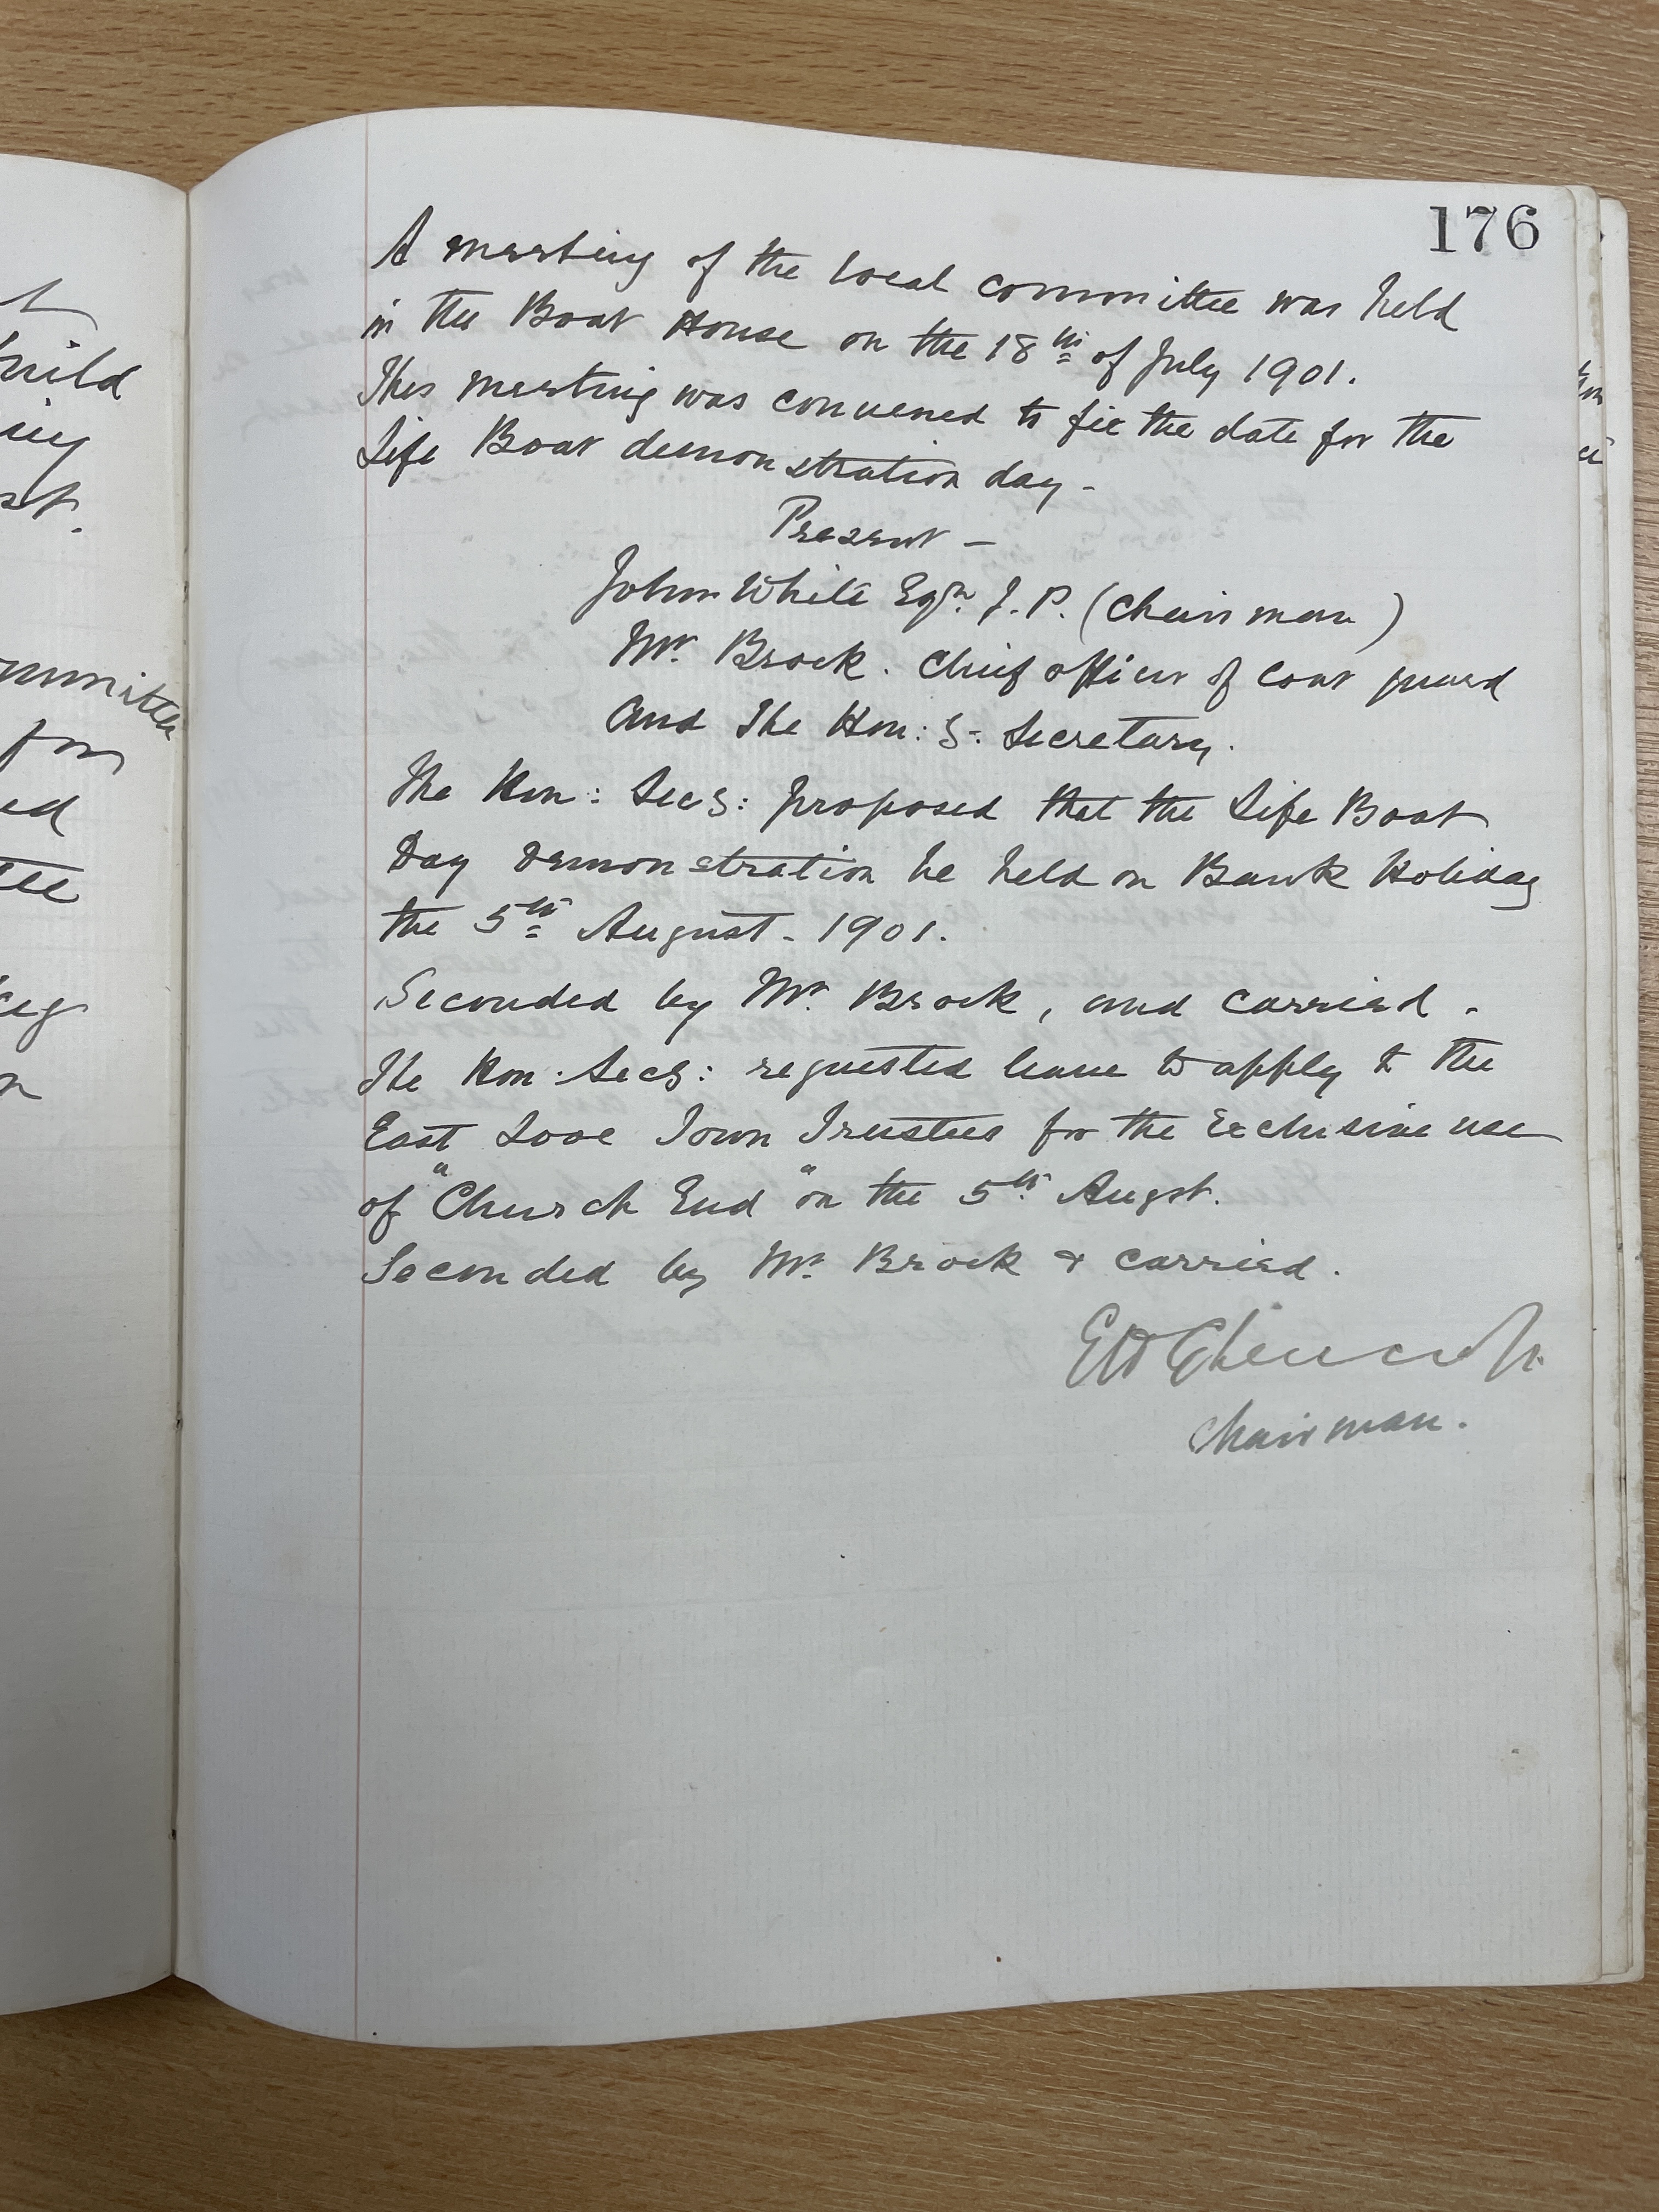 176
A meeting of the local committee was held
in the Boat House on the 18th of July 1901.
This meeting was convened to fix the date for the
Life Boat demonstration day -
Present -
John White Esqr. J. P. (Chairman)
Mr. Brock. Chief officer of Coast guard
And The Hon: S- Secretary.
The Hon: Secy: proposed that the Life Boat
Day Demonstration be held on Bank Holiday
the 5th August - 1901.
Seconded by Mr. Brock, and carried -
The Hon: Secy: requested leave to apply to the
East Looe Town Trustees for the Exclusive use
of "Church End" on the 5th Augst.
Seconded by Mr. Brock & carried.
Chairman.